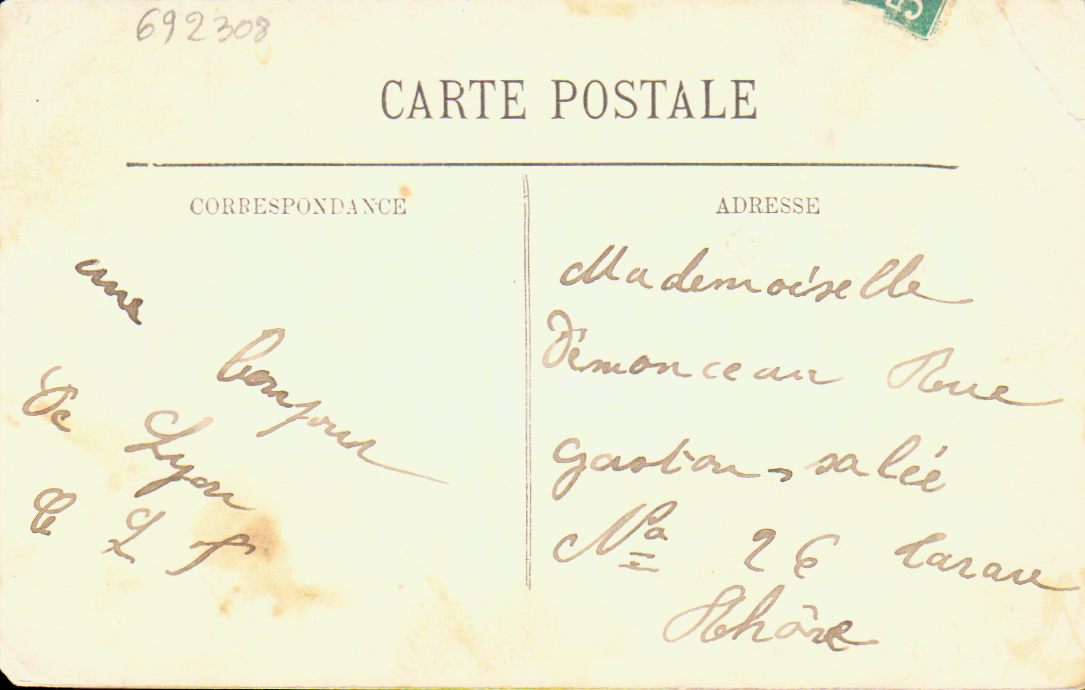 692308
5
CARTE POSTALE
CORRESPONDANCE
ADRESSE
une
bonjour
De Lyon
Mademoiselle
Démonceau Rue
Gaston, salée
Nº 26 Tarare
Rhône